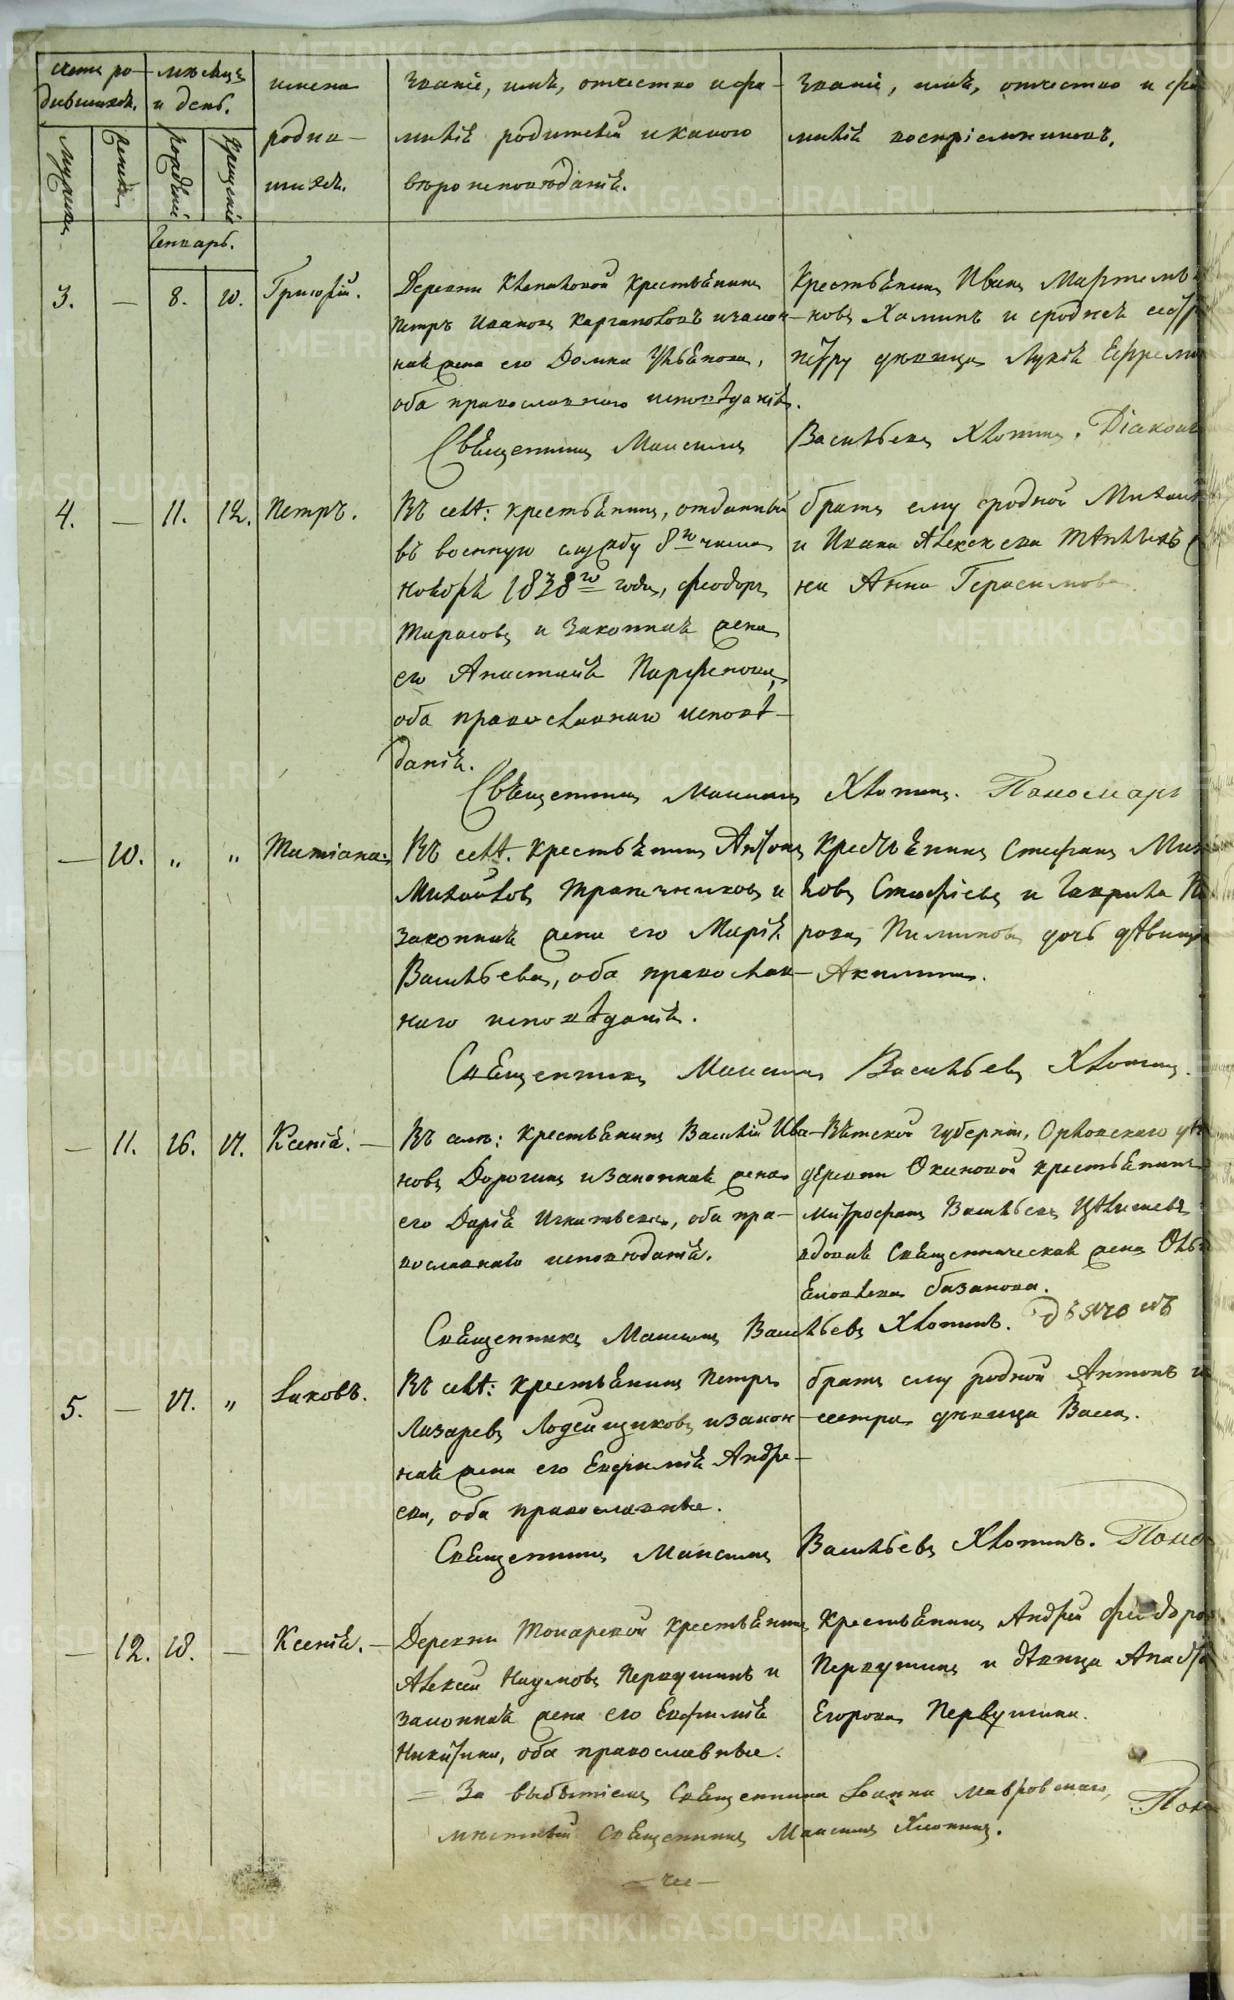 счетъ ро-
дившихся.
мѣсяцъ
и день.
имена
родив-
шихся.
Званіе, имя, отчество и фа-
милія родителей и какого
вѣроисповѣданія.
Званіе, имя, отчество и фа
милія воспріемниковъ.
мужеска
женска
рожденія
крещенія
Генварь.
3. — 8. 10. Григорій.
Деревни Клепаловой крестьянинъ
Петръ Ивановъ Каргаполовъ и закон-
ная жена его Домна Ульянова,
оба православнаго исповѣданія.
Крестьянинъ Иванъ Мартемья
новъ Хаминъ и
дѣвица Лукія Ефремо
Священникъ Максимъ Васильевъ Хлопинъ. Діаконъ
4. — 11. 12. Петръ.
Въ селѣ: крестьянинъ, отданный
въ военную службу 8го числа
ноября 1838го года, Феодоръ
Тарасовъ и законная жена
его Анастасія Парфенова,
оба православнаго исповѣ-
данія.
братъ ему сродной Михаил
и Ивана Алексѣева
на Анна Герасимова
Священникъ Максимъ Хлопинъ. Пономарь
— 10. „ „ Татіана:
Въ селѣ. крестьянинъ Антонъ
Михайловъ Тряпичниковъ и
законная жена его Марія
Васильева, оба православ-
наго исповѣданія.
Крестьянинъ Стефанъ Миха
ловъ и Гаврила П
рова Пиминова дочь дѣвица
Акилина.
Священникъ Максимъ Васильевъ Хлопинъ.
— 11. 16. 17. Ксенія. —
Въ селѣ: крестьянинъ Василій Ива-
новъ Дорогинъ и законная жена
его Дарія Игнатьева, оба пра-
вославнаго исповѣданія.
Вятской губерніи, Орловскаго уѣ
деревни Окиновой крестьянинъ
Митрофанъ Васильевъ
вдовая Священническая жена Оль
Базанова.
Священникъ Максимъ Васильевъ Хлопинъ. Дьячокъ
5. — 17. „ Іаковъ.
Въ селѣ: крестьянинъ Петръ
Лазаревъ Лодейщиковъ и закон-
ная жена его Евфимія Андре-
ева, оба православные.
братъ ему родной Антонъ и
сестра дѣвица Васса.
Священникъ Максимъ Васильевъ Хлопинъ. Поно
— 12. 18. — Ксенія. —
Деревни Токаревой крестьянинъ
Алексѣй Наумовъ Первушинъ и
законная жена его Евфимія
Никитина, оба православные.
Крестьянинъ Андрей Феодоро
Первушинъ и дѣвица Анаст
Егорова Первушина.
= За выбытіемъ Священника Іоанна Мавровскаго,
мѣстный Священникъ Максимъ Хлопинъ.
Поно
METRIKI.GASO-URAL.RU